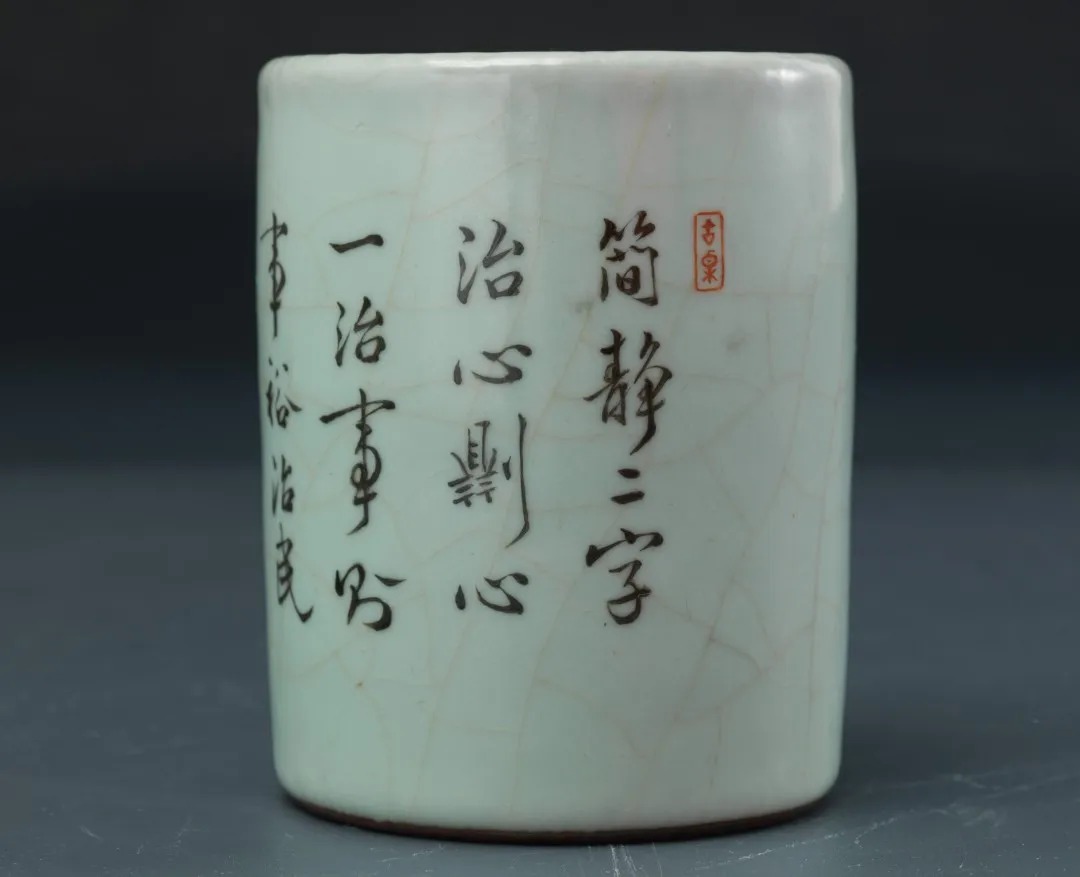 古泉
简静二字
治心則心
一治事则
事裕治民